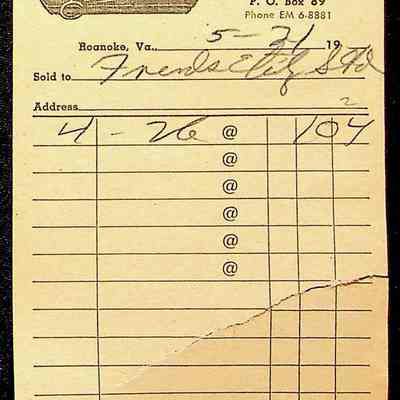 P. O. Box 89
Phone EM 6-8881
Roanoke, Va., 5-31 19
Sold to
Address 2
4 - 26 @ 104
@
@
@
@
@